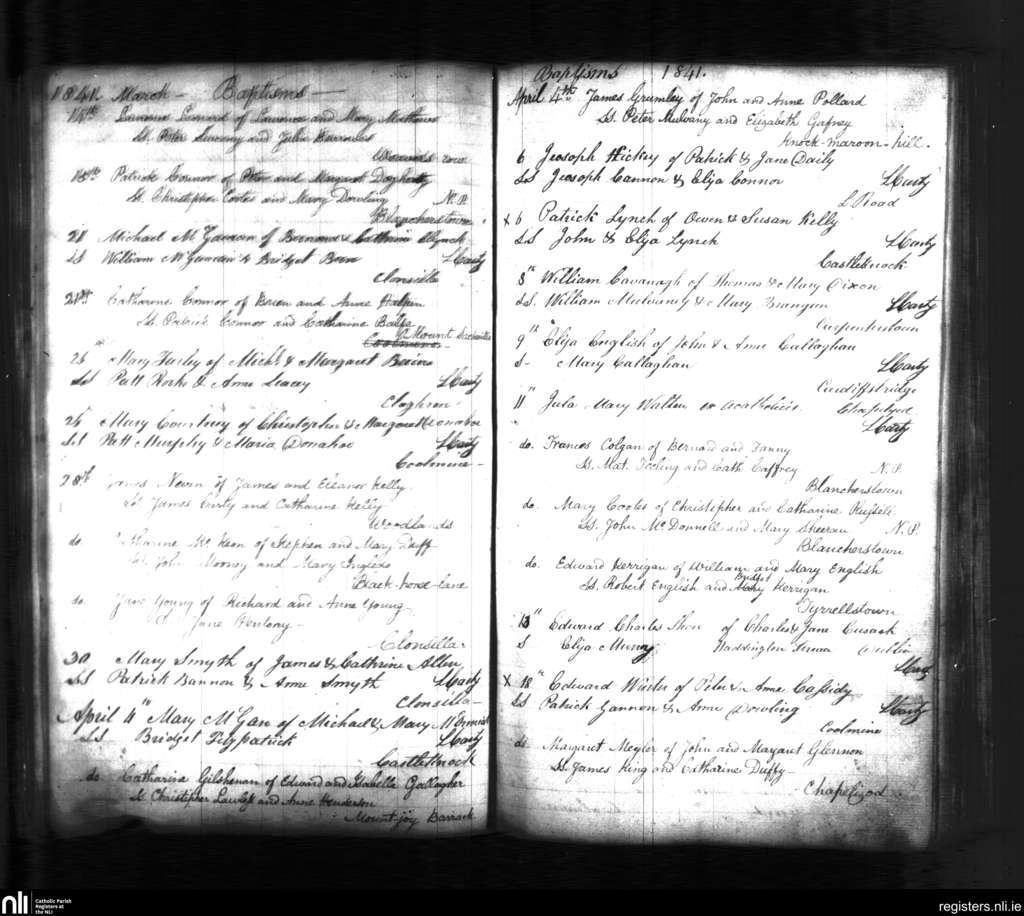 1841. March - Baptisms -
14th Laurence Lenard of Laurence and Mary Mathews
Ss. Peter and Julia
row
18th Patrick Connor of Peter and Margaret Dogherty
Ss. Christopher Coates and Mary Dowling N.P.
Blancherstown
21 Michael McGawran of Bernard & Cathrine Lynch
SS William McGawran & Bridget LCarty
Clonsilla
21st Catharine Connor of Brien and Anne Halpin
Ss. Patrick Connor and Catharine
Mount
Coolmine
25 Mary Farley of Michl & Margaret
SS Patt Rorke & Anne Leacy LCarty
Cloghran
26 Mary Courtney of Christopher & Margaret Donahoe
SS Patt Murphy & Maria Donahoe LCarty
Coolmine -
28th James Nevin of James and Eleanor Kelly
Ss. James and Catharine Kelly
Woodlands
do Marine Mc Keon of Stephen and Mary Duff
Ss. John Mooney and Mary
Black-horse-lane
do Jane Young of Richard and Anne Young
S. Jane Henlony -
Clonsilla.
30 Mary Smyth of James & Cathrine Allen
SS Patrick Bannon & Anne Smyth LCarty
Clonsilla -
April 4" Mary McGan of Michael & Mary
SS Bridget Fitzpatrick LCarty
CastleKnock
do. Catharine Gilshenan of Edward and Isabella Gallagher
Ss Christopher Lawless and Annie Henderson
Mount-joy Barrack
Baptisms 1841.
April 4th James Grumley of John and Anne Pollard
Ss. Peter Mulvany and Elizabeth Gafney
Knock-maroon-hill.
6 Jeosoph Hickey of Patrick & Jane Daily
SS Jeosoph Cannon & Eliza Connor LCarty
L Road
x 6 Patrick Lynch of Owen & Susan Kelly
SS John & Eliza Lynch LCarty
CastleKnock
8" William Cavanagh of Thomas & Mary Dixon
SS. William Mulvany & Mary LCarty
Carpenterstown
9" Eliza English of John & Anne Callaghan
S- Mary Callaghan LCarty
Cardiffsbridge
11" Jula Mary Walten ex acatholicis. Chapelizod
LCarty
do. Frances Colgan of Bernard and Fanny
Ss. Mat. Teeling and Cath. Caffrey N.P.
Blancherstown
do. Mary Cooles of Christopher and Catharine Russell
Ss. John McDonnell and Mary Sheeran N.P.
Blancherstown
do. Edward Kerrigan of William and Mary English
Bridget
Ss. Robert English and Mary Kerrigan
Tyrrellstown
13" Edward Charles of Charles & Jane Cusack
S Eliza Murray Waddington Dublin
LCarty
x 18" Edward Winter of Peter & Anne Cassidy
SS Patrick Gannon & Anne Dowling LCarty
Coolmine
do. Margaret Megler of John and Margaret Glennon
Ss. James King and Catharine Duffy -
Chapelizod
nli Catholic Parish
Registers at
the NLI
registers.nli.ie